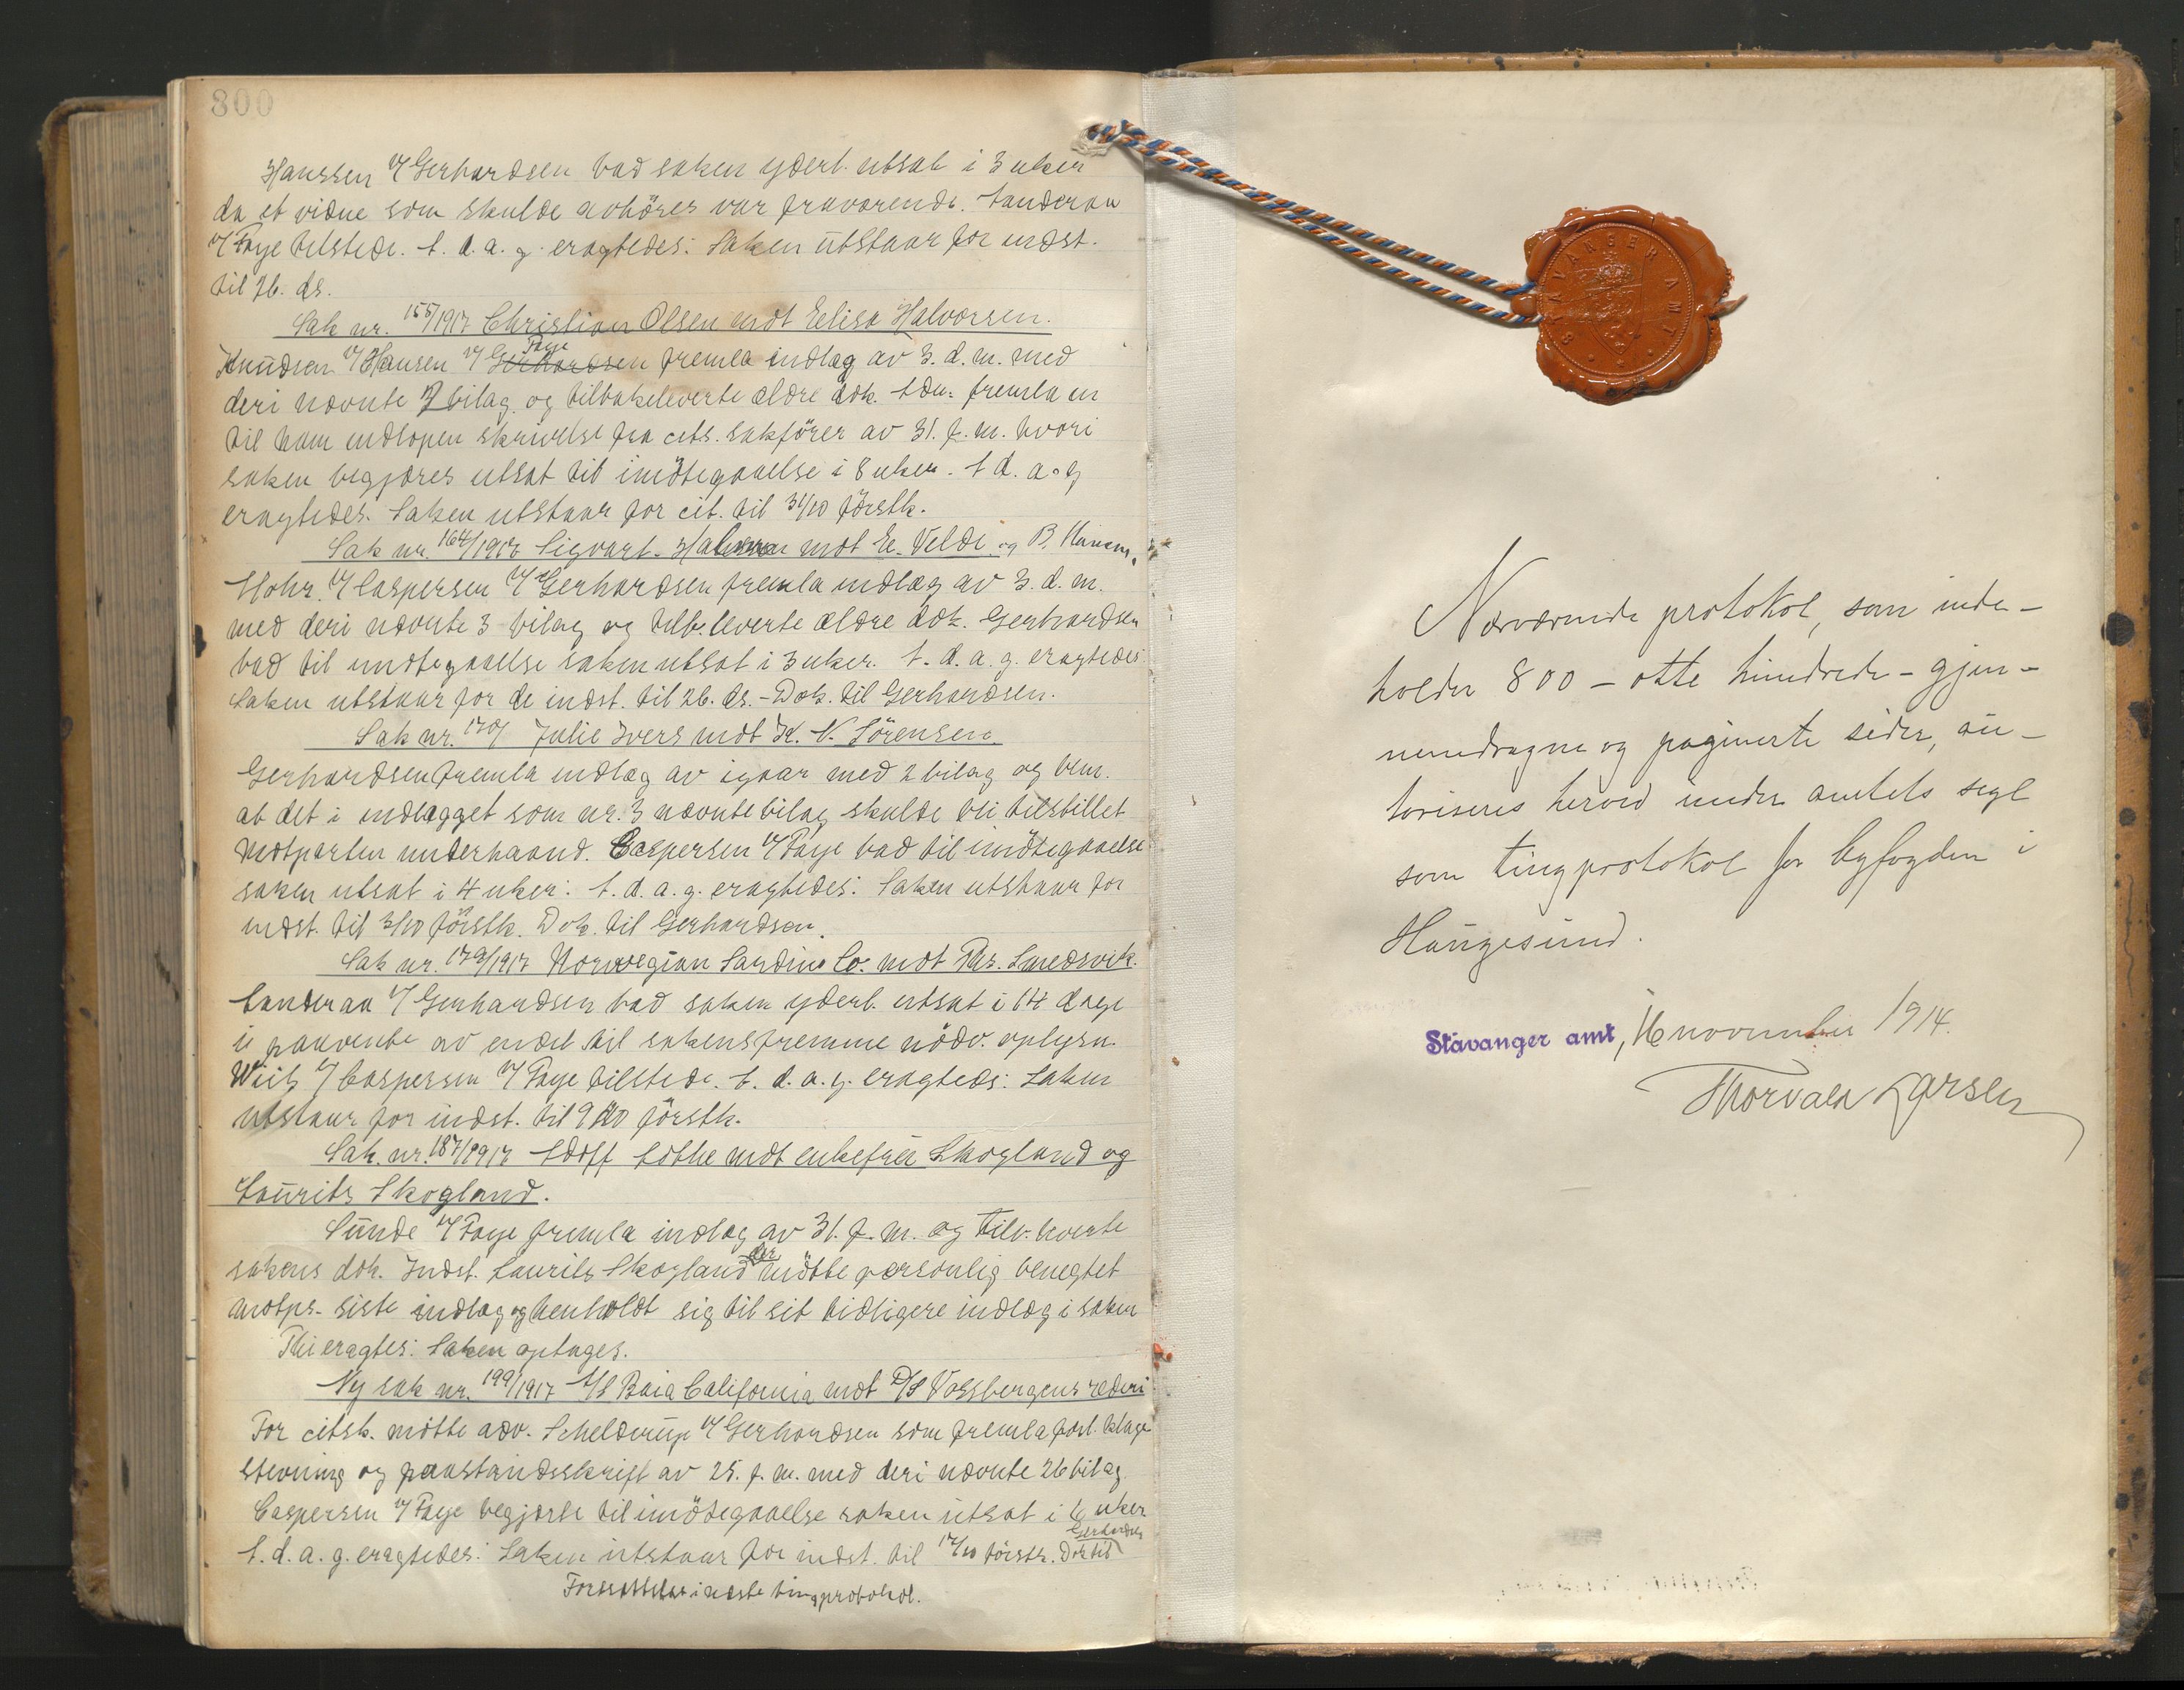 800
Hanssen v/ Gerhardsen bad saken yderl. utsat i 3 uker
da et vidne som skulde avhöres var fraværende. Sanderaa
v/ Faye tilstede. S. d. a. g. eragtedes: Saken utstaar for indst.
til 26. ds.
Sak nr. 155/1917 Christian Olsen mot Elisa Halvorsen.
Knudsen v/ Hansen v/ Faye fremla indlæg av 3. d. m. med
deri nævnte 7 bilag og tilbakeleverte ældre dok. fremla en
til ham indlöpen skrivelse fra cits. sakförer av 31. f. m. hvori
saken begjæres utsat til imötegaaelse i 8 uker. S. d. a. g
eragtedes. Saken utstaar for cit. til 31/10 förstk.
Sak nr. 164/1917 Sigvart Halvorsen mot E. Velde og B. Hansen.
Mohr v/ Caspersen v/ Gerhardsen fremla indlæg av 3. d. m.
med deri nævnte 3 bilag og tilb. leverte ældre dok. Gerhardsen
bad til imötegaaelse saken utsat i 3 uker. S. d. a. g. eragtedes:
Saken utstaar for de indst. til 26. ds. - Dok. til Gerhardsen.
Sak nr. 170/ Julie Ivers mot K. N. Sörensen.
Gerhardsen fremla indlæg av igaar med 2 bilag og bem.
at det i indlægget som nr. 3 nævnte bilag skulde bli tilstillet
Motparten underhaand. Caspersen v/ Faye bad til imötegaaelse
saken utsat i 4 uker: S. d. a. g. eragtedes: Saken utstaar for
indst. til 3/10 förstk. Dok. til Gerhardsen.
Sak nr. 179/1917 Norwegian Sardine Co. mot Ths. Smedsvik.
Sanderaa v/ Gerhardsen bad saken yderl. utsat i 14 dage
i paavente av endel til sakens fremme nödv. oplysn.
Wiik v/ Caspersen v/ Faye tilstede. S. d. a. g. eragtedes: Saken
utstaar for indst. til 9/10 förstk.
Sak. nr. 187/1917 Adolf Lothe mot enkefru Skogland og
Laurits Skogland.
Sunde v/ Faye fremla indlæg av 31. f. m. og tilb. leverte
sakens dok. Indst. Laurits Skogland der mötte personlig benegtet
motps. siste indlæg og henholdt sig til sit tidligere indlæg i saken
Thi eragtes: Saken optages.
Ny sak nr. 199/1917 A/S Baia California mot D/S Vossbergens rederi
For citsk. mötte adv. Schelderup v/ Gerhardsen som fremla forl. klage
stevning og paastandsskrift av 25. f. m. med deri nævnte 26 bilag
Caspersen v/ Faye begjærte til imötegaaelse saken utsat i 6 uker
S. d. a. g. eragtedes: Saken utstaar for indst. til 17/10 förstk. Dok til Gerhardsen
Forsættelse i næste tingprotokol.
STAVANGER AMT
Nærværende protokol, som inde-
holder 800 - otte hundrede - gjen-
nemdragne og paginerte sider, au-
toriseres herved under amtets segl
som tingprotokol for byfogden i
Haugesund.
Stavanger amt, 16 november 1914.
Thorvald Larsen